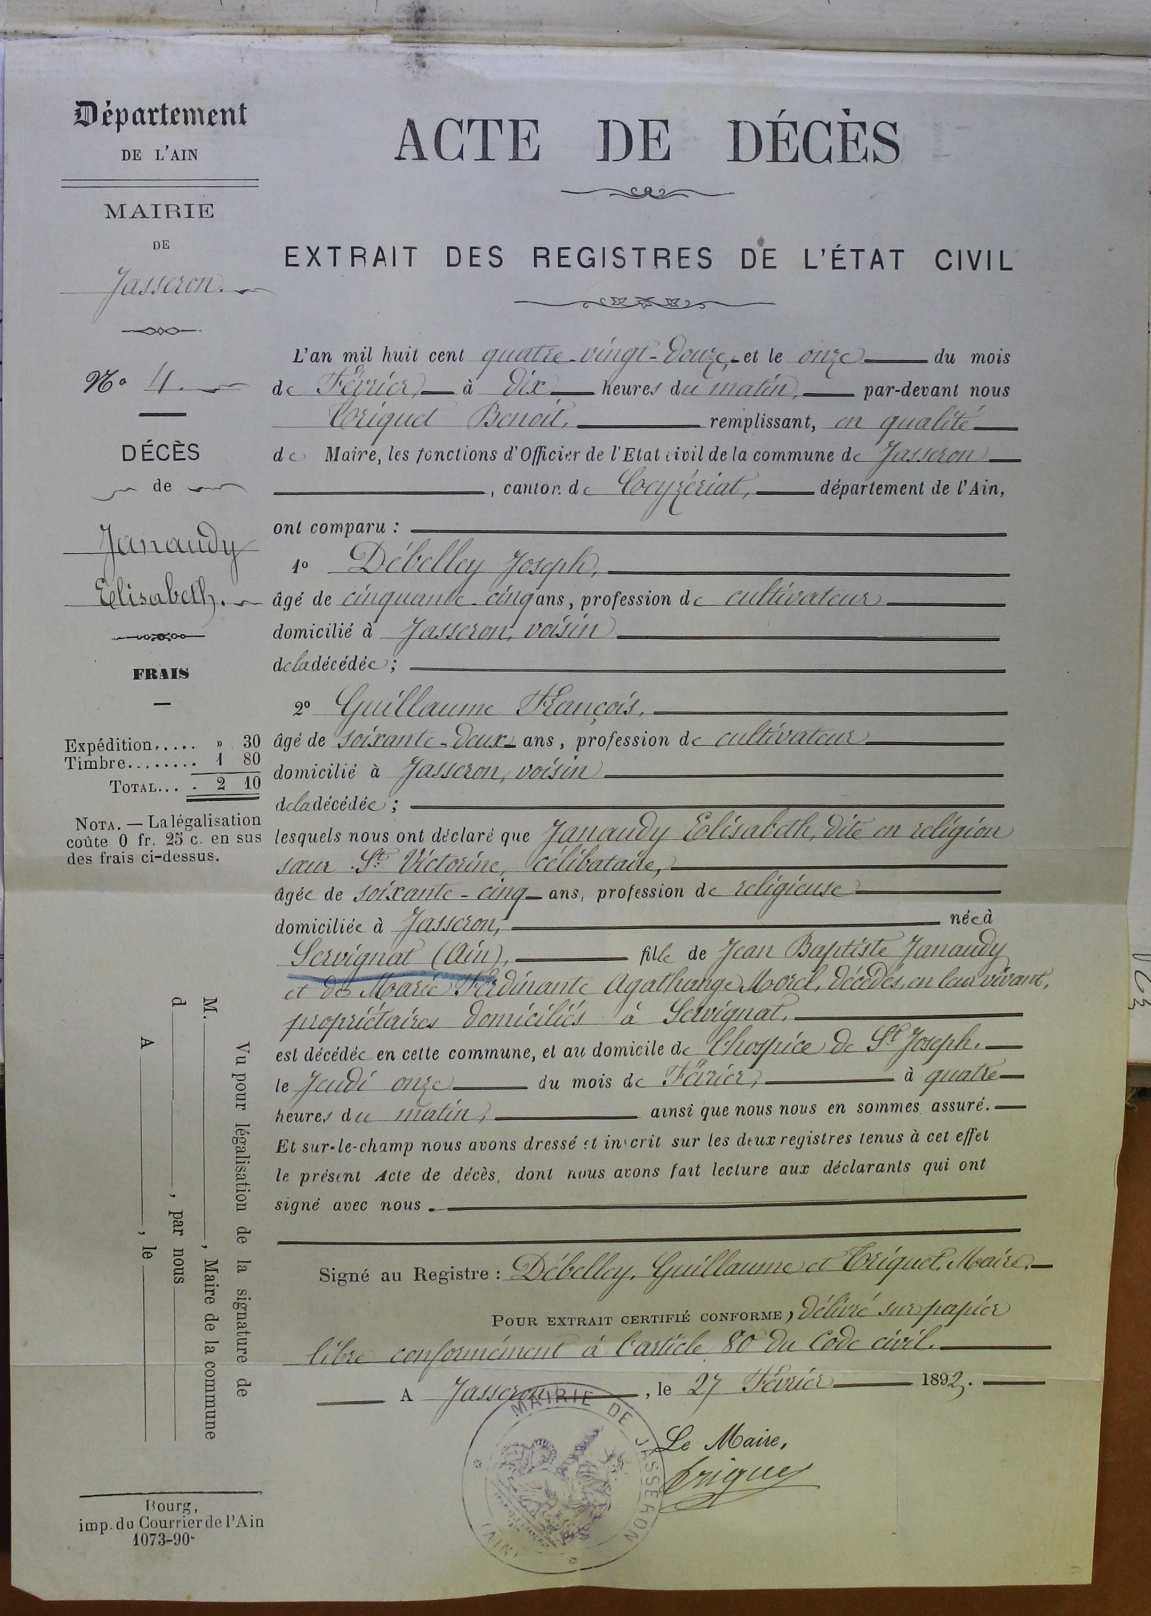 Département
DE L'AIN
MAIRIE
DE
Jasseron.
No 4.
DÉCÈS
de
Janaudy
Elisabeth.
FRAIS
Expédition..... » 30
Timbre........ 1 80
TOTAL... . 2 10
NOTA. — La légalisation
coûte 0 fr. 25 c. en sus
des frais ci-dessus.
Vu pour légalisation de la signature de
M. , Maire de la commune
d , par nous
A , le
Bourg,
imp. du Courrier de l'Ain
1073-90
ACTE DE DÉCÈS
EXTRAIT DES REGISTRES DE L'ÉTAT CIVIL
L'an mil huit cent quatre-vingt-douze, et le onze du mois
de Février, à dix heures du matin, par-devant nous
Triquet Benoit, remplissant, en qualité
de Maire, les fonctions d'Officier de l'Etat civil de la commune de Jasseron
, canton de Ceyzériat, département de l'Ain,
ont comparu :
1o Débelley Joseph,
âgé de cinquante-cinq ans, profession de cultivateur
domicilié à Jasseron, voisin
de la décédée ;
2o Guillaume François,
âgé de soixante-deux ans, profession de cultivateur
domicilié à Jasseron, voisin
de la décédée ;
lesquels nous ont déclaré que Janaudy Elisabeth, dite en religion
sœur St Victorine, célibataire,
âgée de soixante-cinq ans, profession de religieuse
domiciliée à Jasseron, née à
Servignat (Ain), fille de Jean Baptiste Janaudy
et de Marie Ferdinante Agathange Morel, décédés, en leur vivant,
propriétaires domiciliés à Servignat.
est décédée en cette commune, et au domicile de l'hospice de St Joseph.
le Jeudi onze du mois de Février, à quatre
heures du matin, ainsi que nous nous en sommes assuré.
Et sur-le-champ nous avons dressé et inscrit sur les deux registres tenus à cet effet
le présent Acte de décès, dont nous avons fait lecture aux déclarants qui ont
signé avec nous.
Signé au Registre : Débelley, Guillaume et Triquet, Maire.
POUR EXTRAIT CERTIFIÉ CONFORME, délivré sur papier
libre conformément à l'article 80 du Code civil.
A Jasseron, le 27 Février 1892.
Le Maire,
Triquet
MAIRIE DE JASSERON
(AIN)